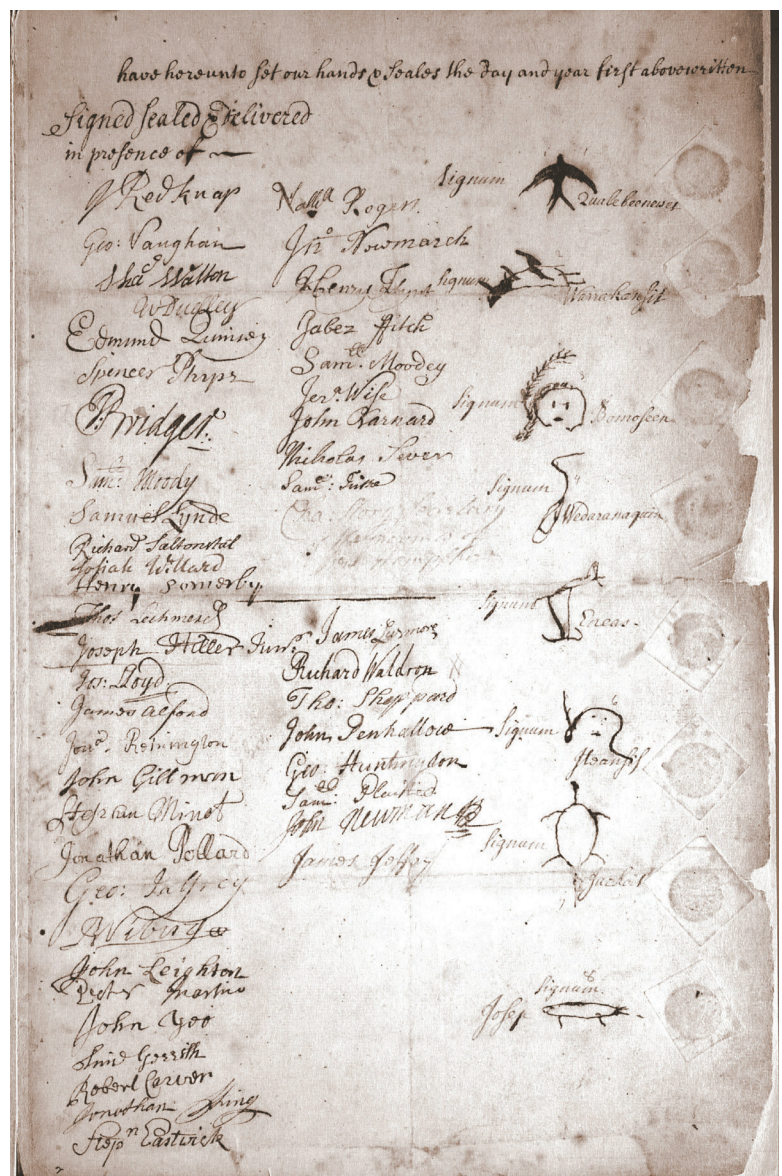 have hereunto set our hands & Seales the Day and year first abovewritten
Signed Sealed & Delivered
in presence of
J Redknap
Geo: Vaughan
Shad Walton
W Dudley
Edmund Quincey
Spencer Phips
Bridger
Sam:ll Moody
Samuel Lynde
Richard Saltonstal
Josiah Willard
Henry Somerby
Thos Lechmere
Joseph Hiller Junr.
Lloyd
James Alford
Jona. Remington
John Gillman
Stephan Minot
Jonathan Pollard
Geo: Jaffrey
RWibird
John Leighton
Peter Martino
John Yeo
Gerrish
Robert Carver
Jonathan King
Stepn Eastwick
Nathll Rogers
Jno Newmarch
Henry
Jabez Fitch
Samll. Moodey
Jera. Wise
John Barnard
Nicholas Sever
Sam:
Cha: Story Secretary
James
Richard Waldron
Tho: Sheppard
John Penhallow
Geo: Huntington
Sam: Plaisted
John Newman
James Jeffry
Signum
Signum Warrakansit
Signum Bomoseen
Signum Wedaranaquin
Signum Eneas.
Signum Iteansis
Signum Jackoit
Signum
Josep